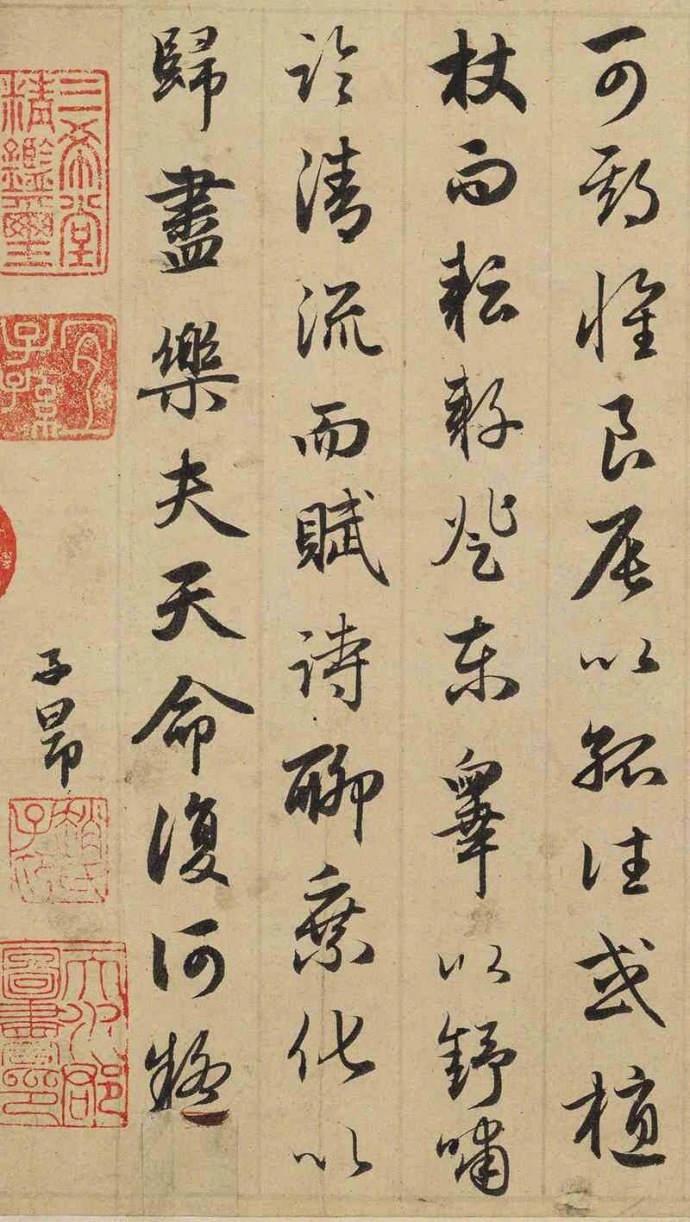 可期懷良辰以孤往或植
杖而耘耔登東皋以舒嘯
臨清流而賦詩聊乗化以
歸盡樂夫天命復何疑
子昂
三希堂精鑑璽
宜子孫
趙氏子昂
天水郡圖書印